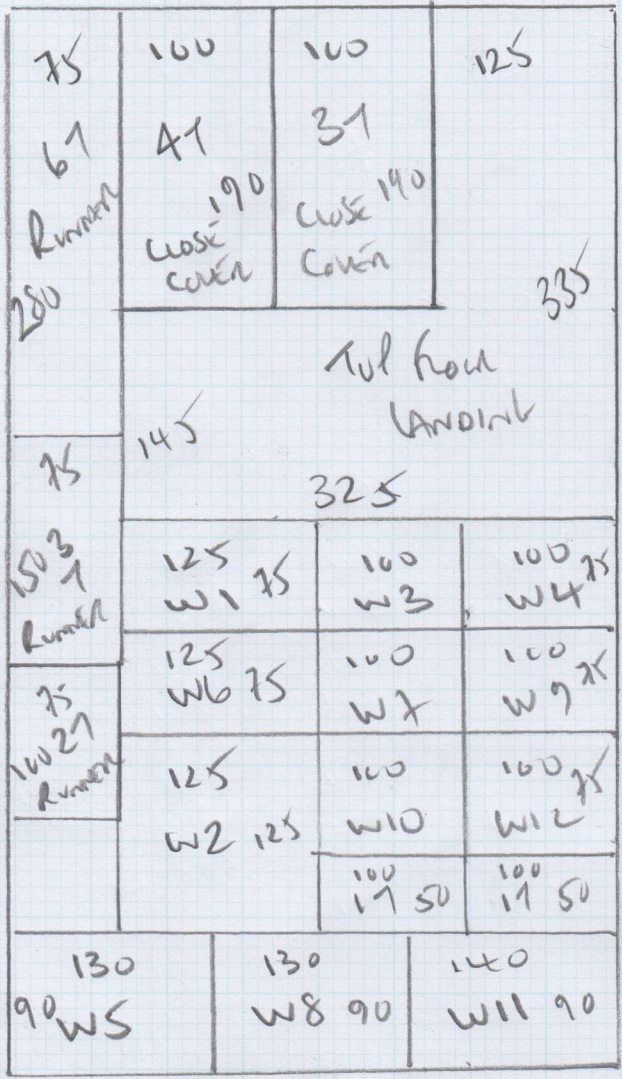 75
6T
RUNNER
280
100
4T
190
CLOSE
COVER
100
3T
CLOSE 140
COVER
125
335
TOP FLOOR
LANDING
145
325
75
150 3
T
RUNNER
75
100 2T
RUNNER
125
W1 75
100
W3
100 75
W4
125
W6 75
100
W7
100 75
W9
125
W2 125
100
W10
100 75
W12
100
1T 50
100
1T 50
130
90 W5
130
W8 90
140
W11 90